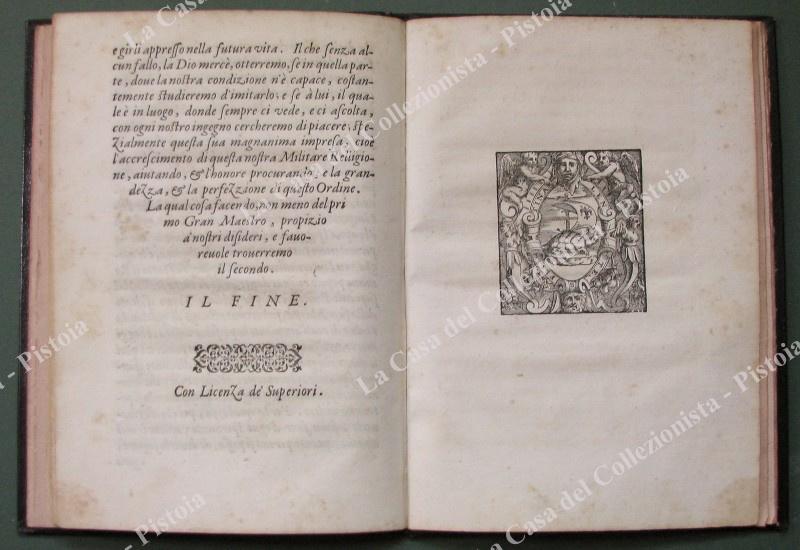 e girli appresso nella futura vita. Il che senza al-
cun fallo, la Dio mercè, otterremo, se in quella par-
te, doue la nostra condizione n'è capace, costan-
temente studieremo d'imitarlo; e se à lui, il qua-
le è in luogo, donde sempre ci vede, e ci ascolta,
con ogni nostro ingegno cercheremo di piacere, spe-
zialmente questa sua magnanima impresa, cioè
l'accrescimento di questa nostra Militare Religio-
ne, aiutando, & l'honore procurando, e la gran-
dezza, & la perfezzione di questo Ordine.
La qual cosa facendo, non meno del pri
mo Gran Maestro, propizio
a' nostri disideri, e fauo-
reuole trouerremo
il secondo.
IL FINE.
Con Licenza de' Superiori.
La Casa del Collezionista - Pistoia